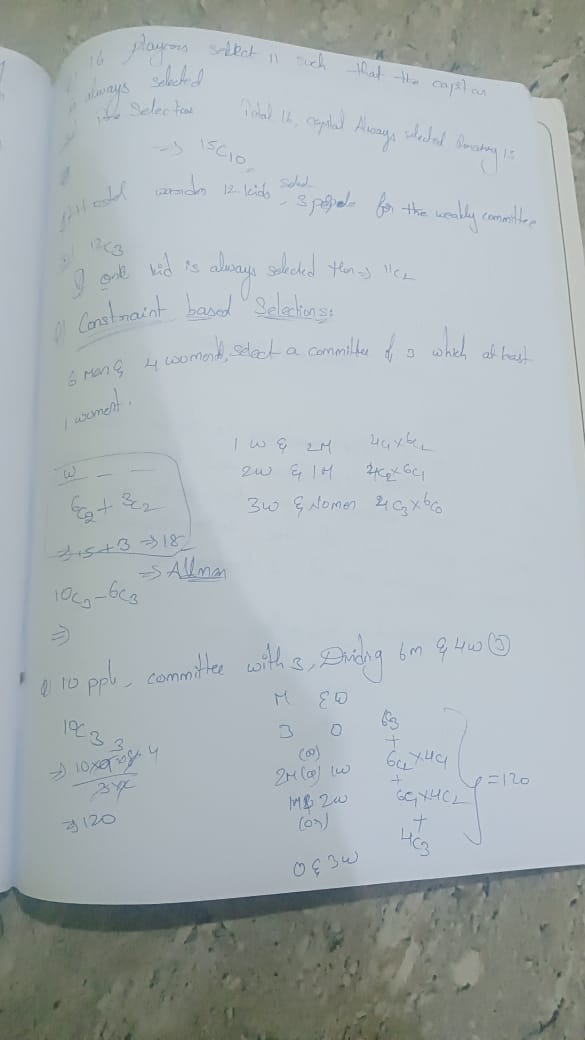 16 players select 11 such that the captian
always selected
the Selection Total 16, captial Always selected Remaing 15
=> 15C10
consider 12 kids, select 3 people for the weakly committee
12C3
I one kid is always selected then => 11C2
Q) Constraint based Selections:
6 Men & 4 women, select a committee of 3 which at least
1 woment.
1 W & 2M 4C1 x 6C2
W _ _
2W & 1M 4C2 x 6C1
6C2 + 3C2
3W & No men 4C3 x 6C0
=> 15 + 3 => 18
=> All man
10C3 - 6C3
=>
Q 10 ppl, committee with 3, Dividig 6m & 4W (3)
M & W
10C3
3 0 6C3
(or) +
=> 10x9x8
2M (or) 1W 6C2 x 4C1
+
1M & 2W 6C1 x 4C2 = 120
=> 120
(or) +
4C3
0 & 3W